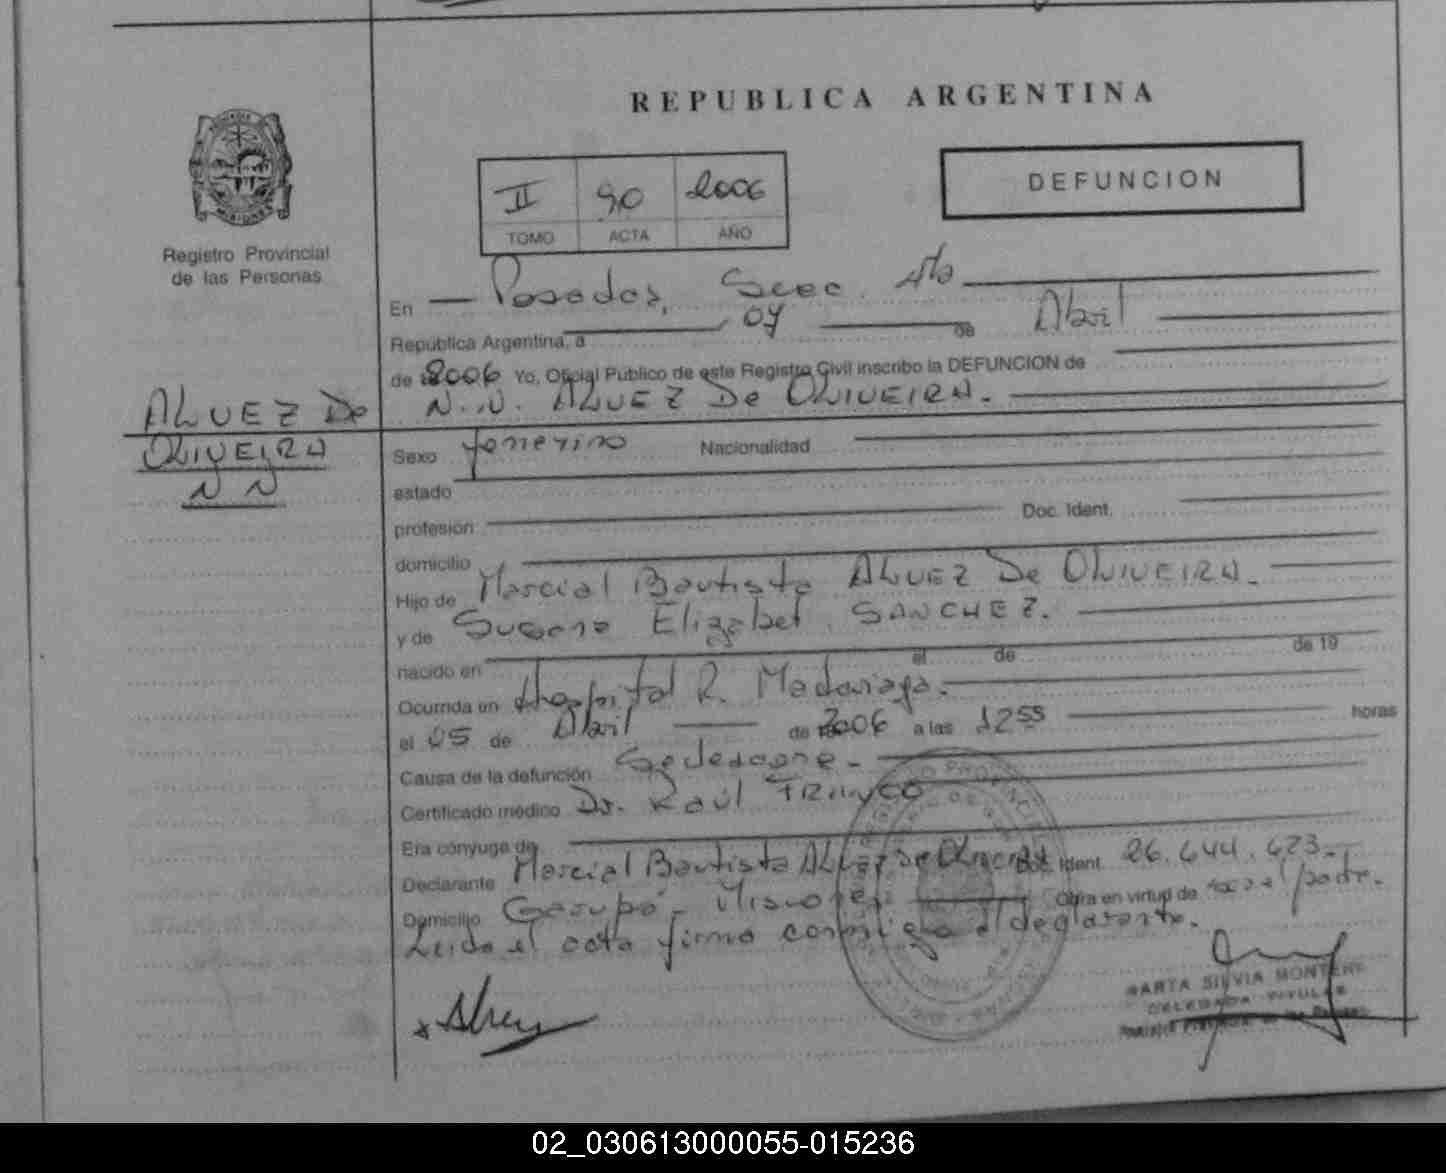 REPUBLICA ARGENTINA
DEFUNCION
II 90 2006
TOMO ACTA AÑO
Registro Provincial
de las Personas
En Posadas, Secc. 4ta
República Argentina, a 07 de Abril
de 2006 Yo, Oficial Público de este Registro Civil inscribo la DEFUNCION de
N.N. ALVEZ De OLIVEIRA.
ALVEZ De
OLIVEIRA
N N
Sexo femenino Nacionalidad
estado
profesión Doc. Ident.
domicilio
Hijo de Marcial Bautista ALVEZ De OLIVEIRA.
y de Susana Elizabet SANCHEZ.
nacido en el de de 19
Ocurrida en Hospital R. Madariaga.
el 05 de Abril de 2006 a las 12 55 horas
Causa de la defunción
Certificado médico Dr. Raúl FRANCO
Era cónyuge de
Declarante Marcial Bautista ALVEZ De OLIVEIRA Doc. Ident. 26.644.623.-
Domicilio Garupá - Misiones. Obra en virtud de ser el padre.
Leída el acta firma conmigo el declarante.
MARTA SILVIA
DELEGADA TITULAR
02_030613000055-015236